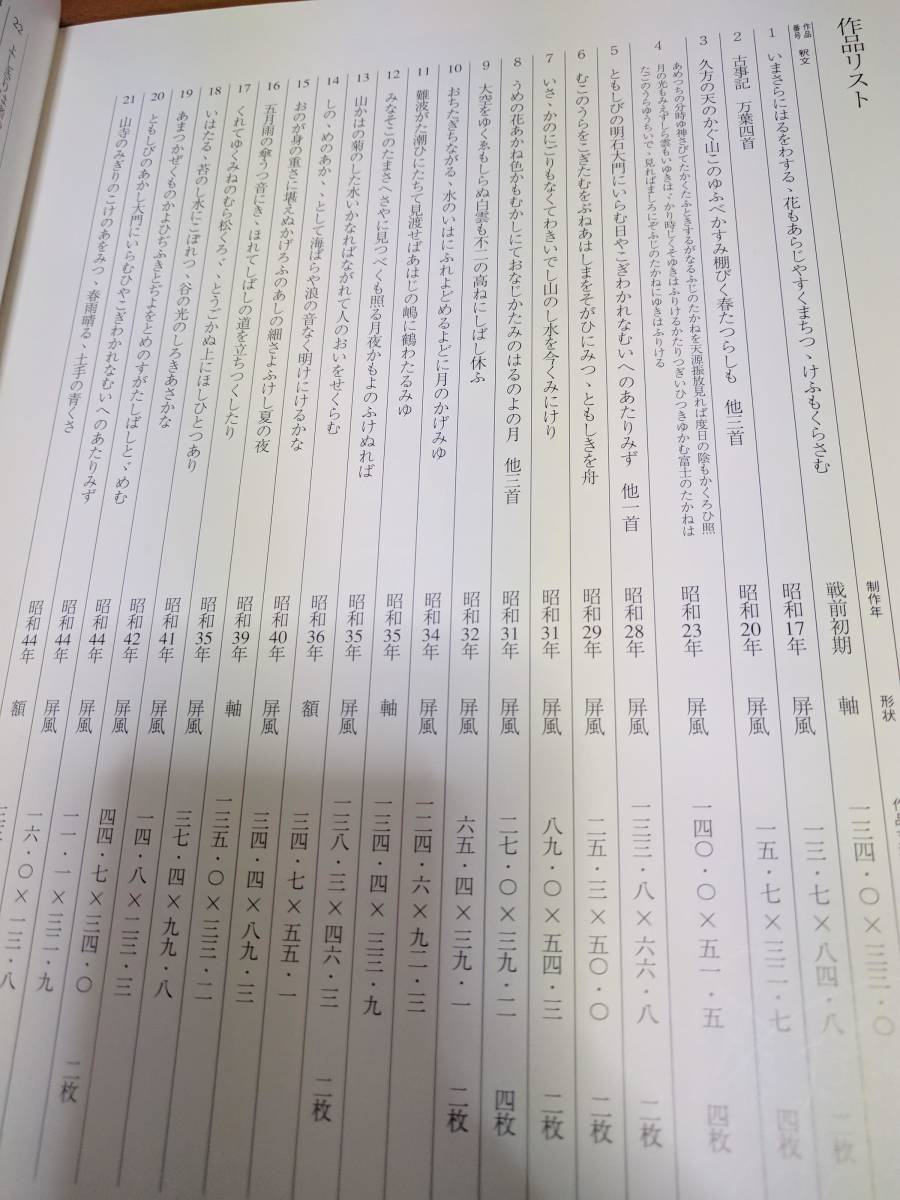 作品リスト
作品番号 釈文 制作年 形状
1 いまさらにはるをわする、花もあらじやすくまちつゝけふもくらさむ 戦前初期 軸 一三四・〇×三三・〇
2 古事記 万葉四首 昭和17年 屏風 一三・七×八四・八 二枚
3 久方の天のかぐ山このゆふべかすみ棚びく春たつらしも 他三首 昭和20年 屏風 一五・七×三二・七 四枚
4 あめつちの分時ゆ神さびてたかくたふときするがなるふじのたかねを天源振放見れば度日の陰もかくろひ照
月の光もみえずしら雲もいゆきはゞかり時じくそゆきはふりけるかたりつぎいひつきゆかむ富士のたかねは
たごのうらゆうちいで、見ればましろにぞふじのたかねにゆきはふりける 昭和23年 屏風 一四〇・〇×五一・五 四枚
5 ともしびの明石大門にいらむ日やこぎわかれなむいへのあたりみず 他一首 昭和28年 屏風 一三三・八×六六・八 二枚
6 むこのうらをこぎたむをぶねあはしまをそがひにみつゝともしきを舟 昭和29年 屏風 二五・三×五〇・〇 二枚
7 いさゝかのにごりもなくてわきいでし山のし水を今くみにけり 昭和31年 屏風 八九・〇×五四・三 二枚
8 うめの花あかね色かもむかしにておなじかたみのはるのよの月 他三首 昭和31年 屏風 二七・〇×三九・二 四枚
9 大空をゆくゑもしらぬ白雲も不二の高ねにしばし休ふ 昭和32年 屏風 六五・四×三九・一 二枚
10 おちたぎちながる、水のいはにふれよどめるよどに月のかげみゆ 昭和34年 屏風 一二四・六×九二・三
11 難波がた潮ひにたちて見渡せばあはじの嶋に鶴わたるみゆ 昭和35年 軸 一三四・四×三三・九
12 みなそこのたまさへさやに見つべくも照る月夜かもよのふけぬれば 昭和35年 屏風 一三八・三×四六・三 二枚
13 山かはの菊のした水いかなればながれて人のおいをせくらむ 昭和36年 額 三四・七×五五・一
14 しのゝめのあかゝゝとして海ばらや浪の音なく明けにけるかな 昭和40年 屏風 三四・四×八九・三
15 おのが身の重さに堪えぬかげろふのあしの細さよふけし夏の夜 昭和39年 軸 一三五・〇×三三・二
16 五月雨の傘うつ音にきゝほれてしばしの道を立ちつくしたり 昭和35年 屏風 三七・四×九九・八
17 くれてゆくみねのむら松くろゞゝとうごかぬ上にほしひとつあり 昭和41年 屏風 一四・八×二三・三
18 いはたる、苔のし水にこぼれつゝ谷の光のしろきあさかな 昭和42年 屏風 四四・七×三四・〇
19 あまつかぜくものかよひぢふきとぢよをとめのすがたしばしとゞめむ 昭和44年 屏風 一一・一×三二・九 二枚
20 ともしびのあかし大門にいらむひやこぎわかれなむいへのあたりみず 昭和44年 屏風 一六・〇×二三・八
21 山寺のみぎりのこけのあをみつゝ春雨晴る、土手の青くさ 昭和44年 額
22